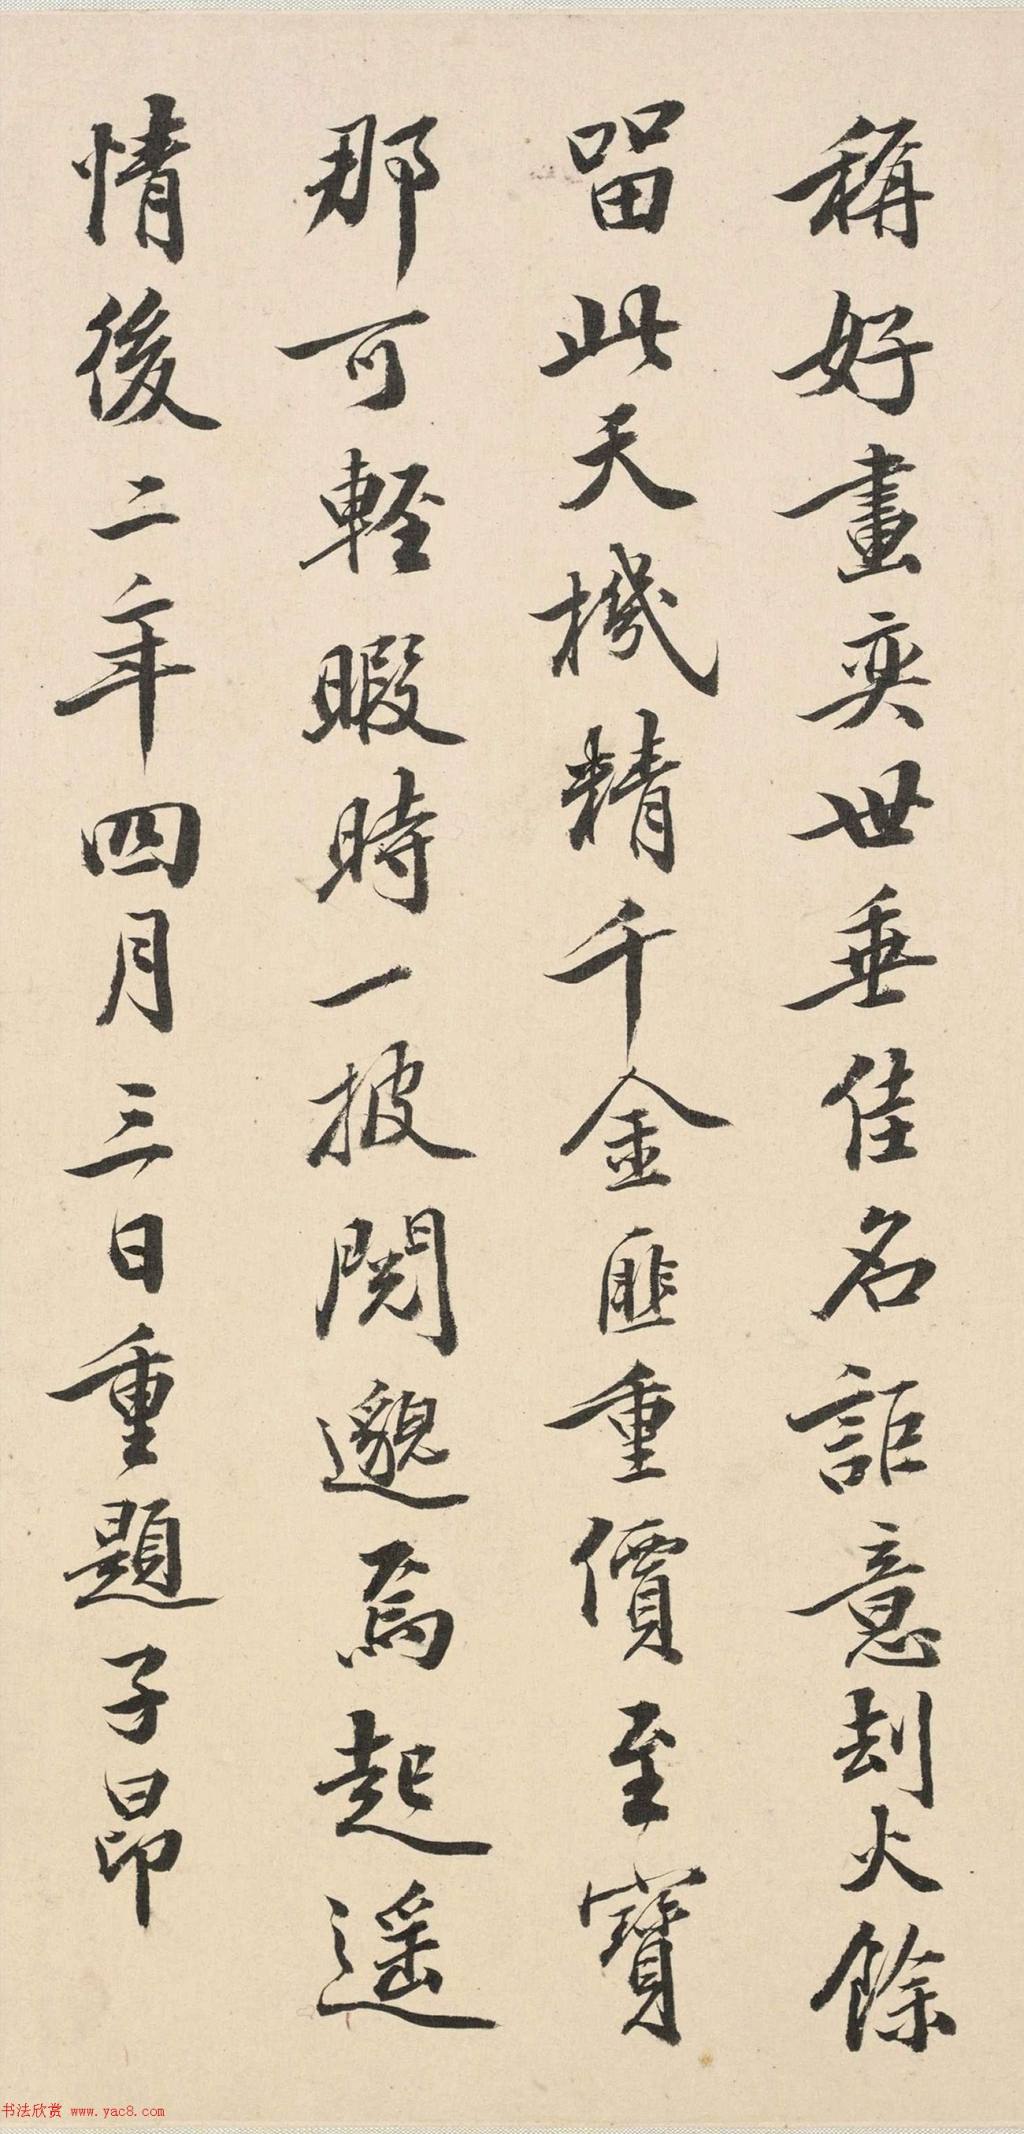 稱好畫奕世垂佳名詎意刦火餘
留此天機精千金匪重價至寶
那可輕暇時一披閱邈焉起遥
情後二年四月三日重題子昂
书法欣赏 www.yac8.com